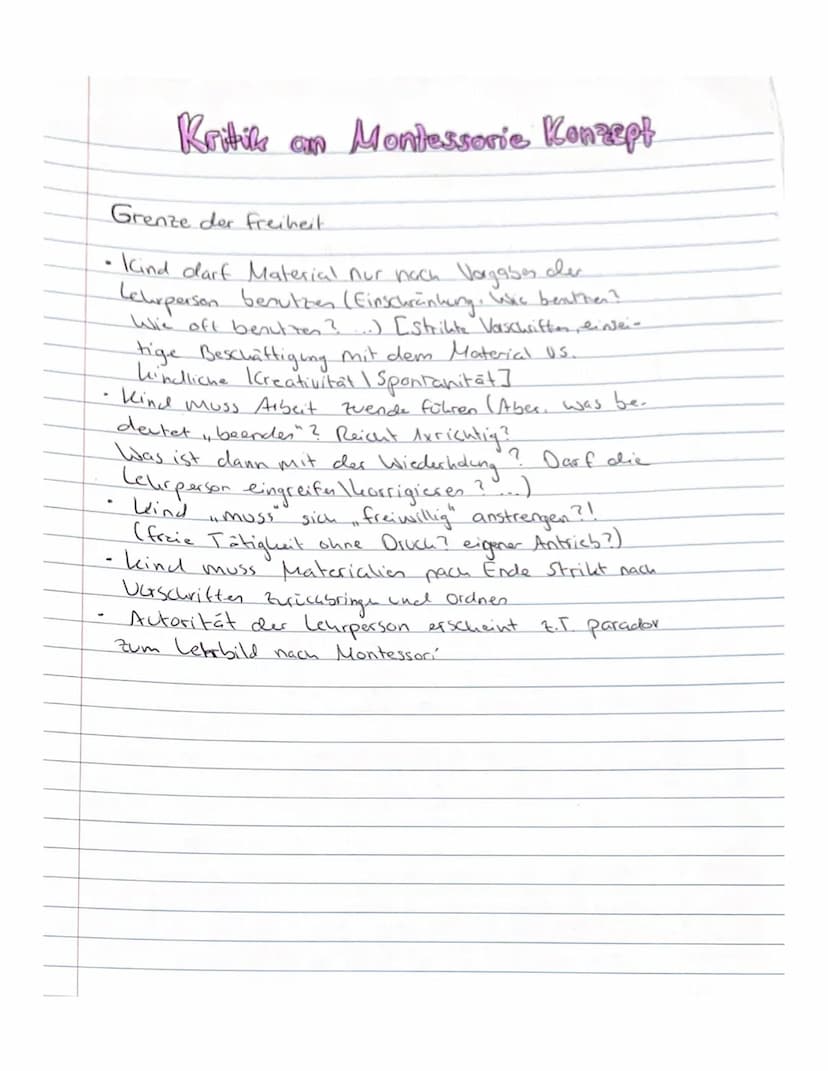 Kritik an Montessorie Konzept
Grenze der Freiheit
• Kind darf Material nur nach Vorgaben der
Lehrperson benutzen (Einschränkung. Wie benutzen?
Wie oft benutzen? ...) [strikte Vorschriften, einsei-
tige Beschäftigung mit dem Material vs.
kindliche Kreativität \ Spontanität]
• Kind muss Arbeit zuende führen (Aber, was be-
deutet „beenden"? Reicht 1x richtig?
Was ist dann mit der Wiederholung? Darf die
Lehrperson eingreifen \ korrigieren? ...)
• Kind „muss" sich „freiwillig" anstrengen?!
(freie Tätigkeit ohne Druck? eigener Antrieb?)
• Kind muss Materialien nach Ende strikt nach
Vorschriften zurückbringen und ordnen
• Autorität der Lehrperson erscheint z.T. paradox
zum Lehrbild nach Montessori